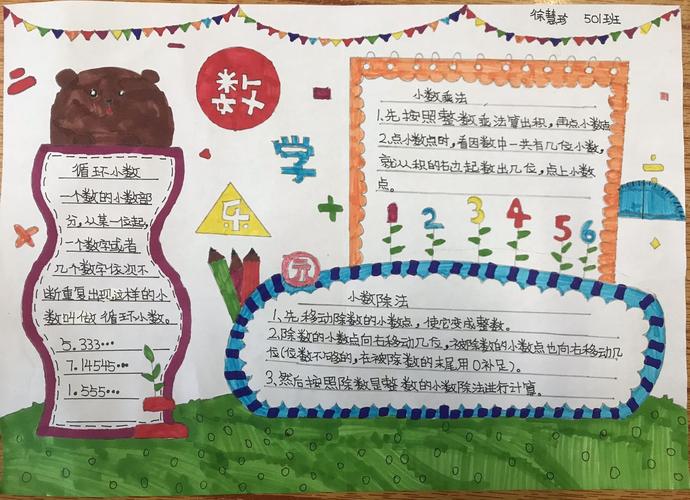 徐慧珍 501班
数
学
乐
元
循环小数
一个数的小数部
分，从某一位起，
一个数字或者
几个数字依次不
断重复出现这样的小
数叫做循环小数。
5.333…
7.14545…
1.555…
小数乘法
1.先按照整数乘法算出积，再点小数点
2.点小数点时，看因数中一共有几位小数，
就从积的右边起数出几位，点上小数
点。
1 2 3 4 5 6
小数除法
1、先移动除数的小数点，使它变成整数。
2.除数的小数点向右移动几位，被除数的小数点也向右移动几
位(位数不够的，在被除数的末尾用0补足)。
3、然后按照除数是整数的小数除法进行计算。